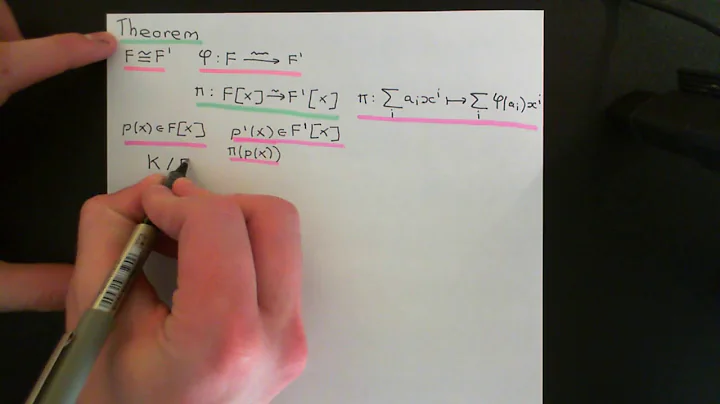 Theorem
F ≅ F' φ : F ⥲ F'
π : F[x] ⥲ F'[x] π : ∑_i a_i x^i ↦ ∑_i φ(a_i) x^i
p(x) ∈ F[x] p'(x) ∈ F'[x]
π(p(x))
K /